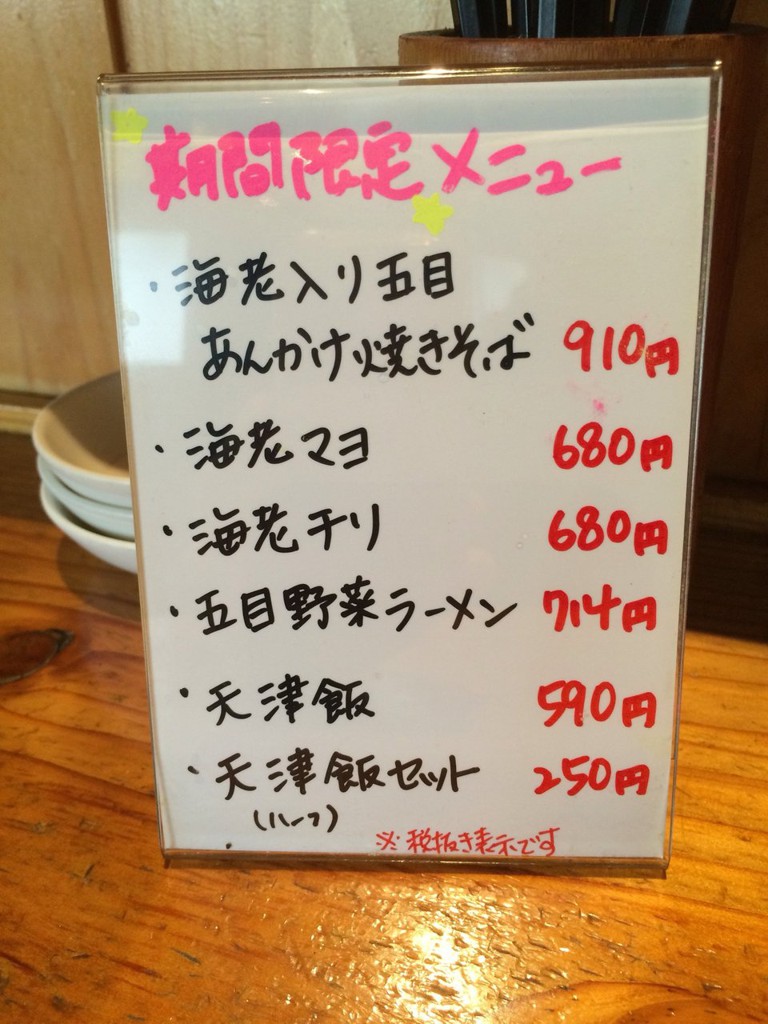 期間限定メニュー
・海老入り五目
あんかけ焼きそば 910円
・海老マヨ 680円
・海老チリ 680円
・五目野菜ラーメン 714円
・天津飯 590円
・天津飯セット 250円
(ハーフ)
※税抜き表示です